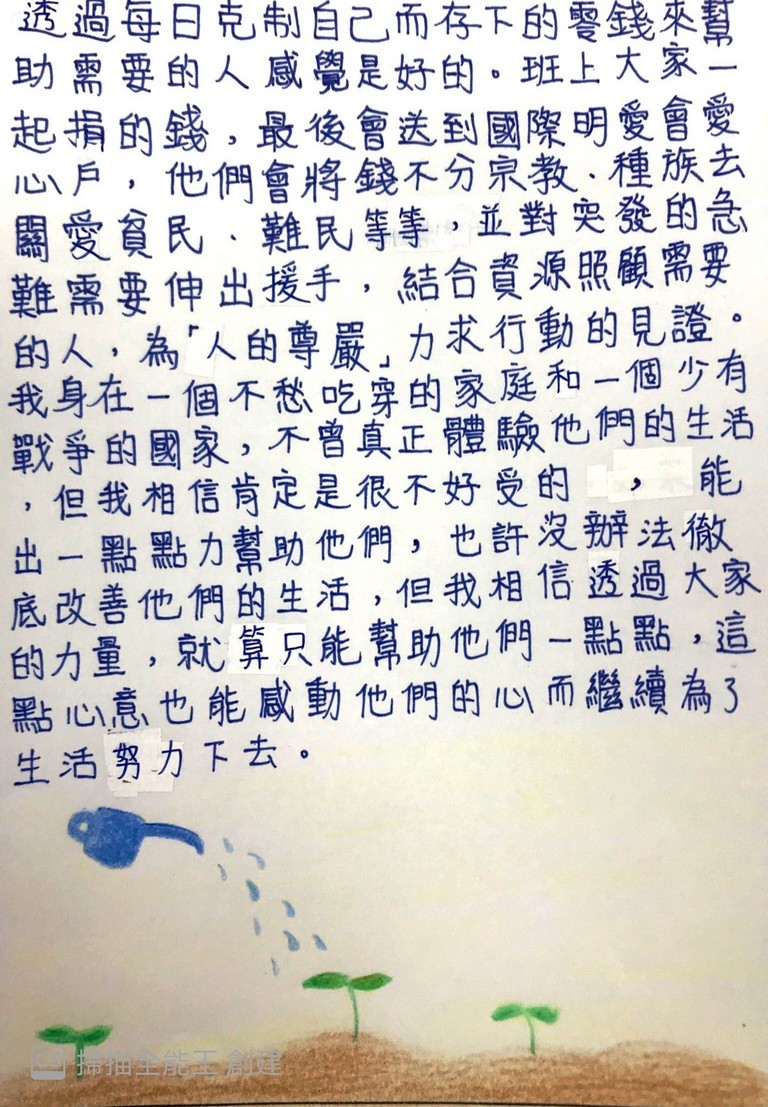 透過每日克制自己而存下的零錢來幫
助需要的人感覺是好的。班上大家一
起捐的錢，最後會送到國際明愛會愛
心戶，他們會將錢不分宗教、種族去
關愛貧民、難民等等，並對突發的急
難需要伸出援手，結合資源照顧需要
的人，為「人的尊嚴」力求行動的見證。
我身在一個不愁吃穿的家庭和一個少有
戰爭的國家，不曾真正體驗他們的生活
，但我相信肯定是很不好受的，能
出一點點力幫助他們，也許沒辦法徹
底改善他們的生活，但我相信透過大家
的力量，就算只能幫助他們一點點，這
點心意也能感動他們的心而繼續為了
生活努力下去。
掃描全能王 創建